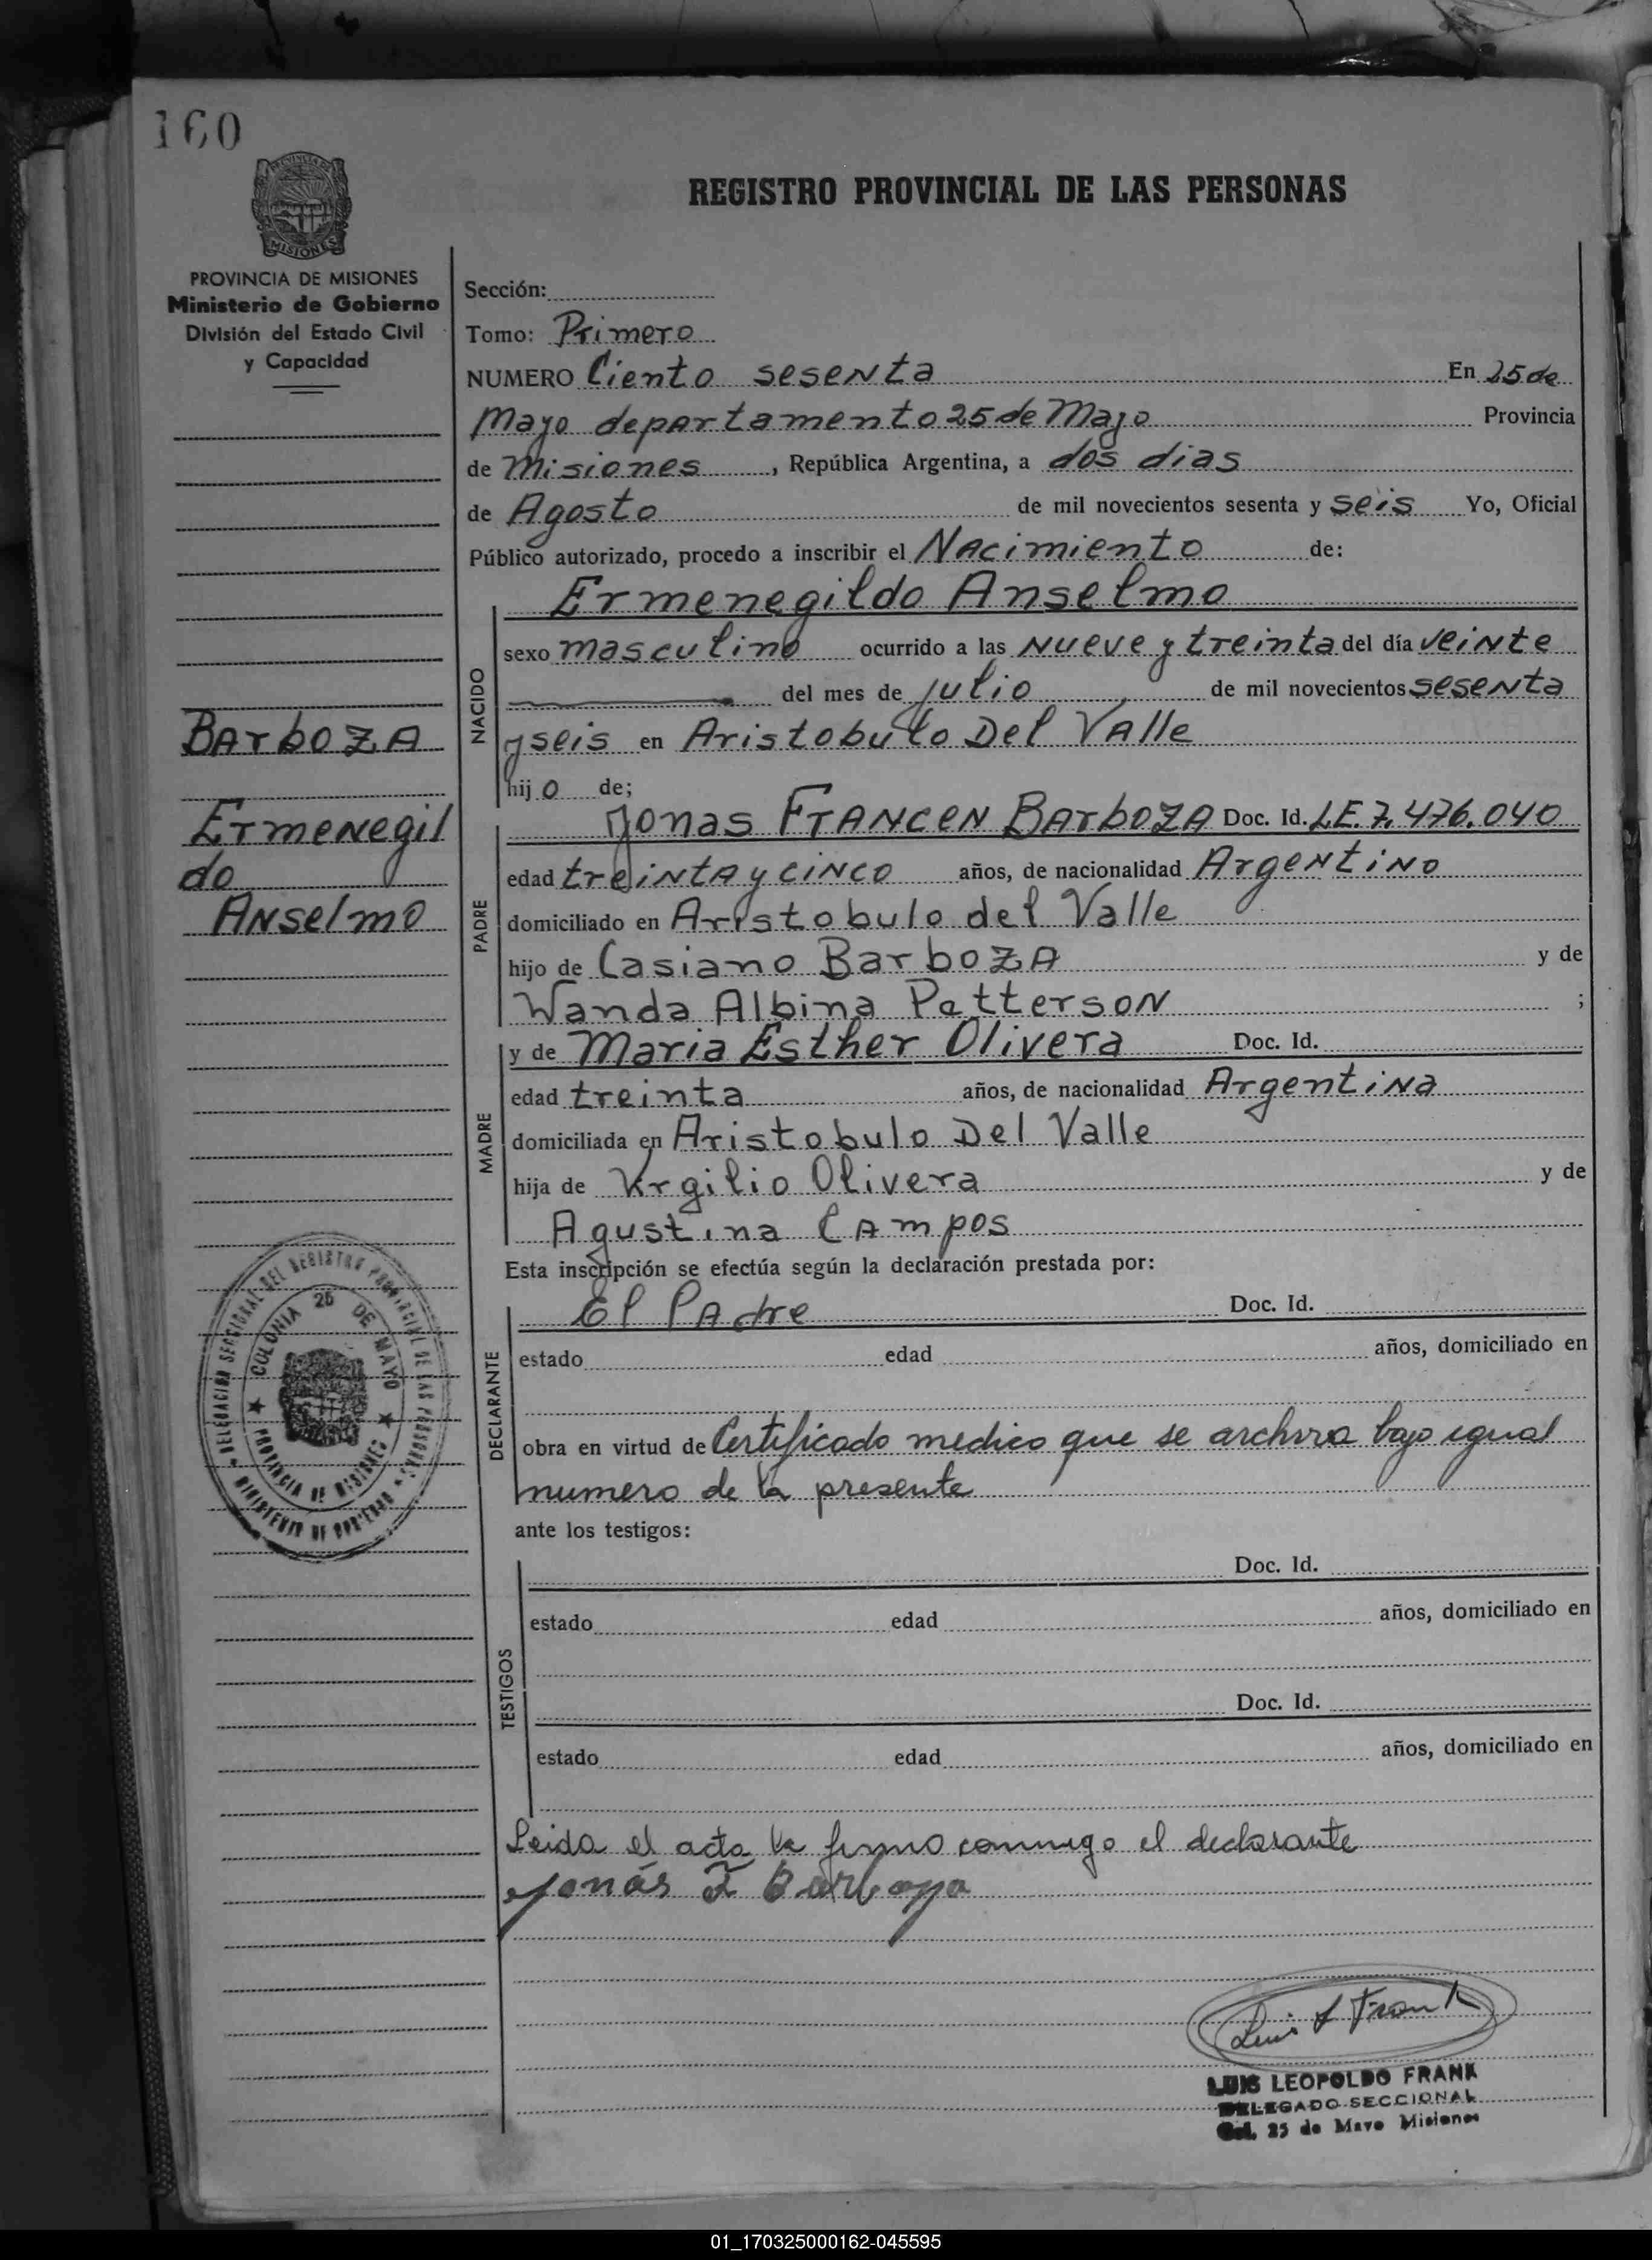 160
PROVINCIA DE
MISIONES
REGISTRO PROVINCIAL DE LAS PERSONAS
PROVINCIA DE MISIONES
Ministerio de Gobierno
División del Estado Civil
y Capacidad
Sección:
Tomo: Primero
NUMERO Ciento sesenta En 25 de
Mayo departamento 25 de Mayo Provincia
de Misiones, República Argentina, a dos dias
de Agosto de mil novecientos sesenta y seis Yo, Oficial
Público autorizado, procedo a inscribir el Nacimiento de:
Ermenegildo Anselmo
NACIDO
sexo masculino ocurrido a las nueve y treinta del día veinte
del mes de julio de mil novecientos sesenta
y seis en Aristobulo Del Valle
hijo de;
BArboZA
Ermenegil
do
Anselmo
PADRE
Jonas FrANCEN BArboZA Doc. Id. LE.7.476.040
edad treinta y cinco años, de nacionalidad Argentino
domiciliado en Aristobulo del Valle
hijo de Casiano BarboZA y de
Wanda Albina Petterson ;
MADRE
y de Maria Esther Olivera Doc. Id.
edad treinta años, de nacionalidad Argentina
domiciliada en Aristobulo Del Valle
hija de Virgilio Olivera y de
Agustina Campos
Esta inscripción se efectúa según la declaración prestada por:
DECLARANTE
El Padre Doc. Id.
estado edad años, domiciliado en
obra en virtud de Certificado medico que se archiva bajo igual
numero de la presente
ante los testigos:
TESTIGOS
Doc. Id.
estado edad años, domiciliado en
Doc. Id.
estado edad años, domiciliado en
DELEGACION SECCIONAL DEL REGISTRO PROVINCIAL DE LAS PERSONAS
MINISTERIO DE GOBIERNO
COLONIA 25 DE MAYO
PROVINCIA DE MISIONES
Leida el acta la firmo conmigo el declarante
Jonás F Barboza
Luis L Frank
LUIS LEOPOLDO FRANK
DELEGADO SECCIONAL
Col. 25 de Mayo Misiones
01_170325000162-045595